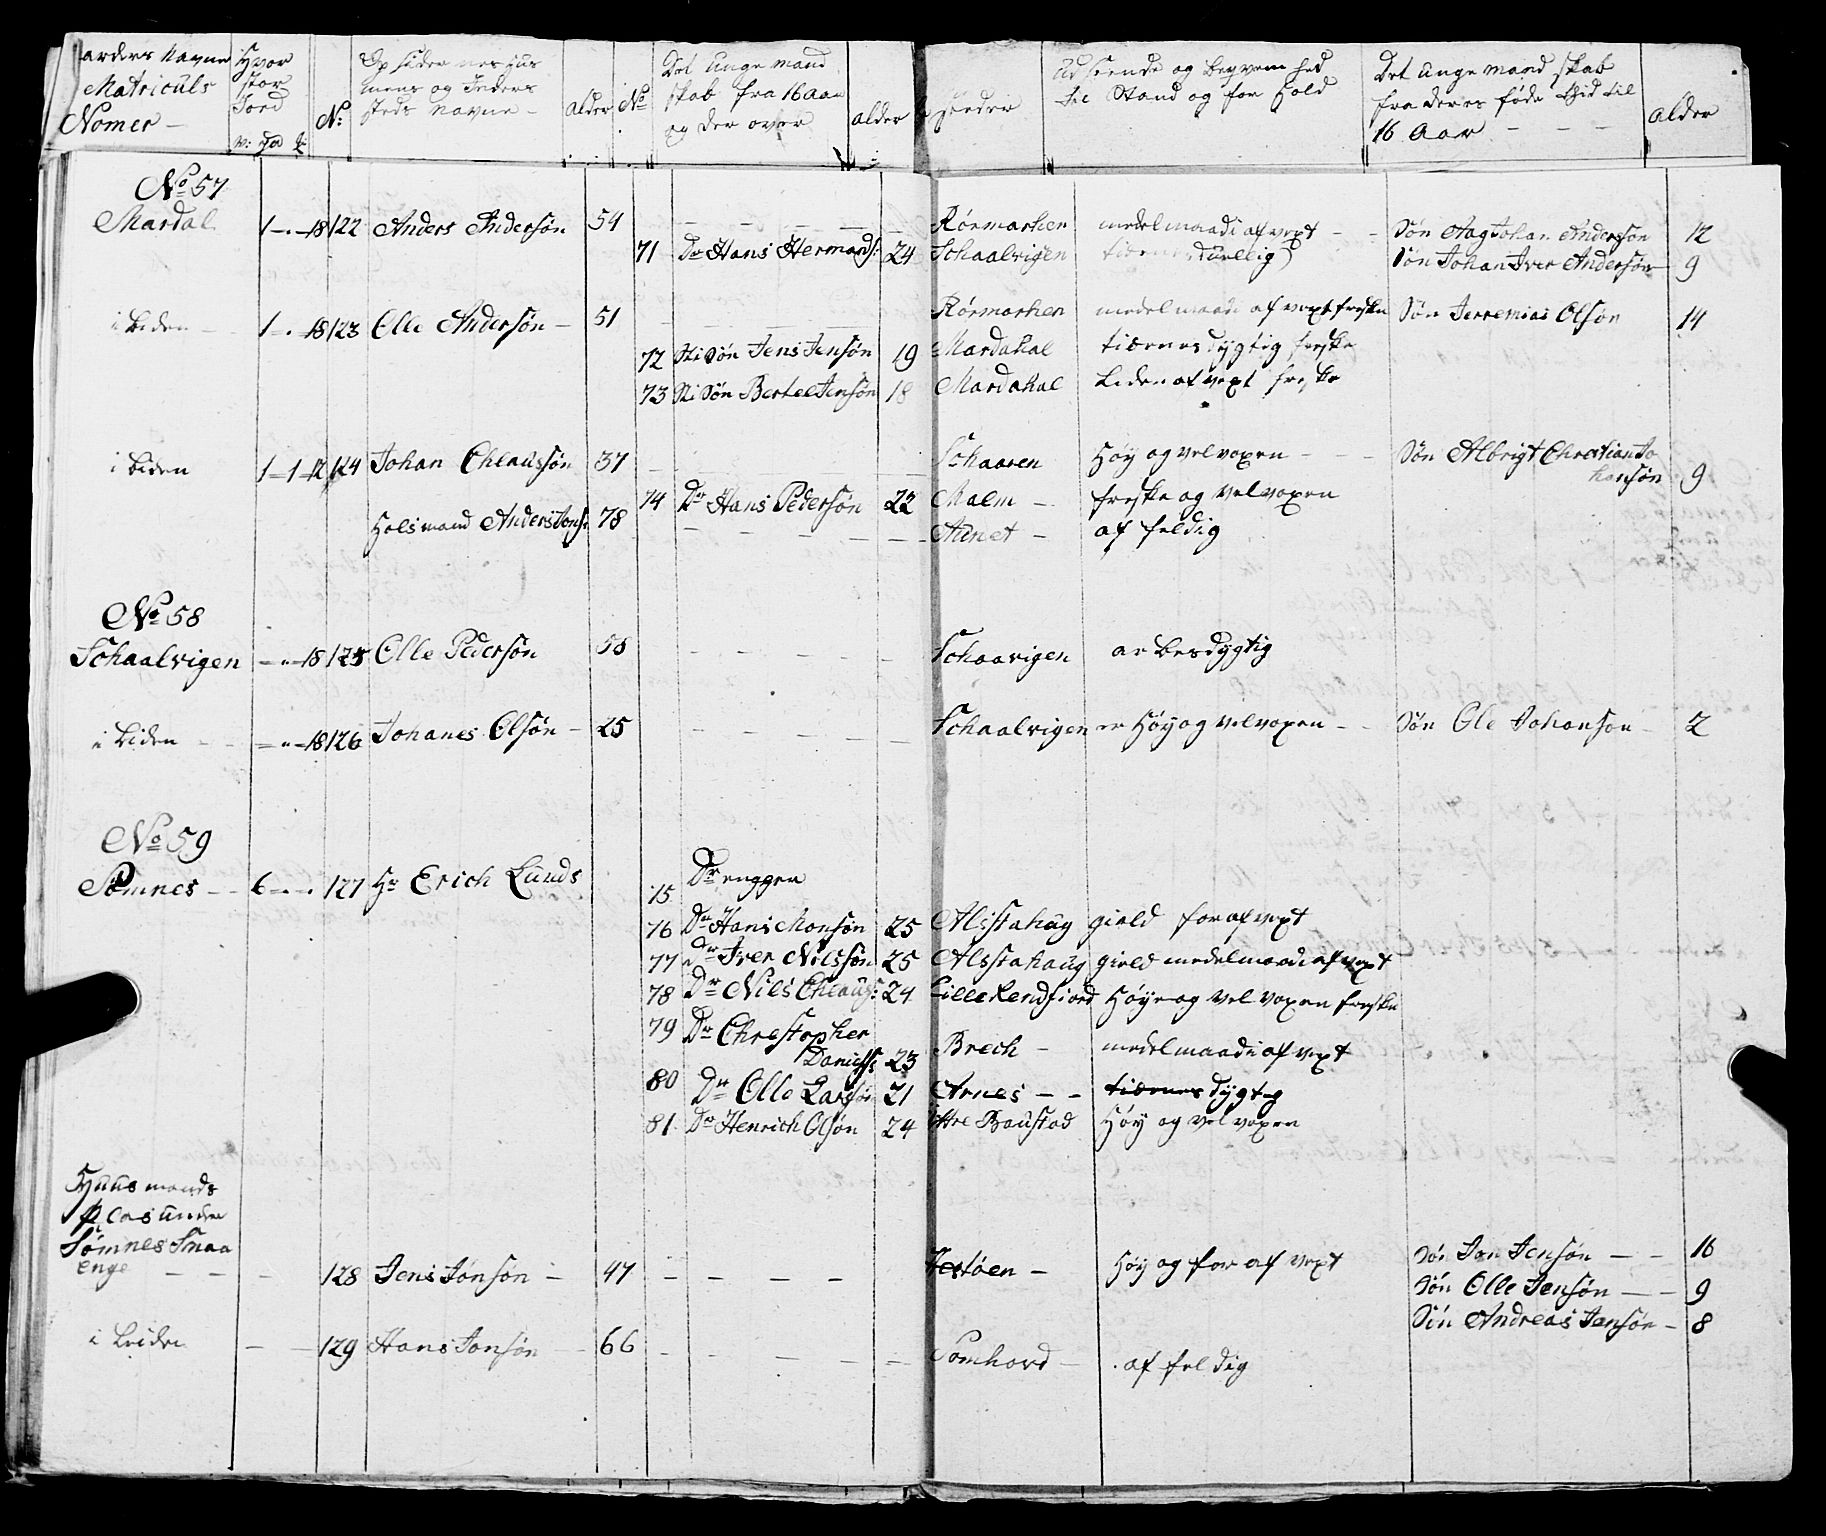 aarders Navne
Matriculs
Nomer —
Hvor
stor
Jord
w: pd ℔:
N:
Opsidernes Huus
mens og Inders
steds navne —
alder
No
Det unge mand
skab fra 16 aar
og der over
alder
steder
Udseende og beqvem hed
til Stand og for Hold
Det unge mand skab
fra deres føde tid til
16 Aar — — —
alder
No 57
Mardal 1 — „ — 18 122 Anders Andersøn 54 — — — Rórmarken medelmaadi af vext — — Søn Aag Johan Andersøn 12
71 Dr Hans Hermands: 24 Schaalvigen tienes duellig Søn Johan Iver Andersøn 9
i biden — 1 — „ 18 123 Olle Andersøn — 51 — — — Rórmarken medelmaadi af vext freske Søn Jerremias Olsøn 14
72 Sti Søn Jens Jensøn 19 Mardahal tienes dygtig freske
73 Sti Søn Bertel Jensøn 18 Mardahal Liden af vext freske
i biden 1 — 1 — 12 124 Johan Chlaussøn 37 — — — Schaaren Høy og velvoxen — — — Søn Albrigt Christian Jo
hansøn 9
74 Dr Hans Pedersøn 22 Malm — freske og velvoxen
Holsmand Anders Jons: 78 — — — Aunet — af feldig
No 58
Schaalvigen — „ — 18 125 Olle Pedersøn 58 — — — Schaavigen arbesdygtig
i biden — — „ — 18 126 Johanes Olsøn — 25 — — — Schaalvigen er Høy og velvoxen — — Søn Ole Johansøn — 2
No 59
Sømnes — — 6 — „ — „ 127 Hr Erich Lunds
75 Drenggen
76 Dr Hans Monsøn 25 Alstahaug gield for af vext
77 Dr Iver Nilssøn 25 Alstahaug gield medelmaadi af vext
78 Dr Nils Chlaus: 24 Lille Rendfiord Høy og vel voxen freske
79 Dr Christopher
Daniels: 23 Brech — medelmaadi af vext
80 Dr Olle Larsøn 21 Arnes — — tienes dygtig
81 Dr Henrich Olsøn 24 ittre Baustad Høy og velvoxen
Huusmands
plas under
Sømnes Smaa
enge — — — 128 Jens Jonsøn — 47 — — — — Hestøen — Høy og for af vext Søn Jon Jensøn — — 16
Søn Olle Jensøn — — 9
Søn Andreas Jensøn — 8
i biden — — 129 Hans Jonsøn — 66 — — — Somhovd — af feldig